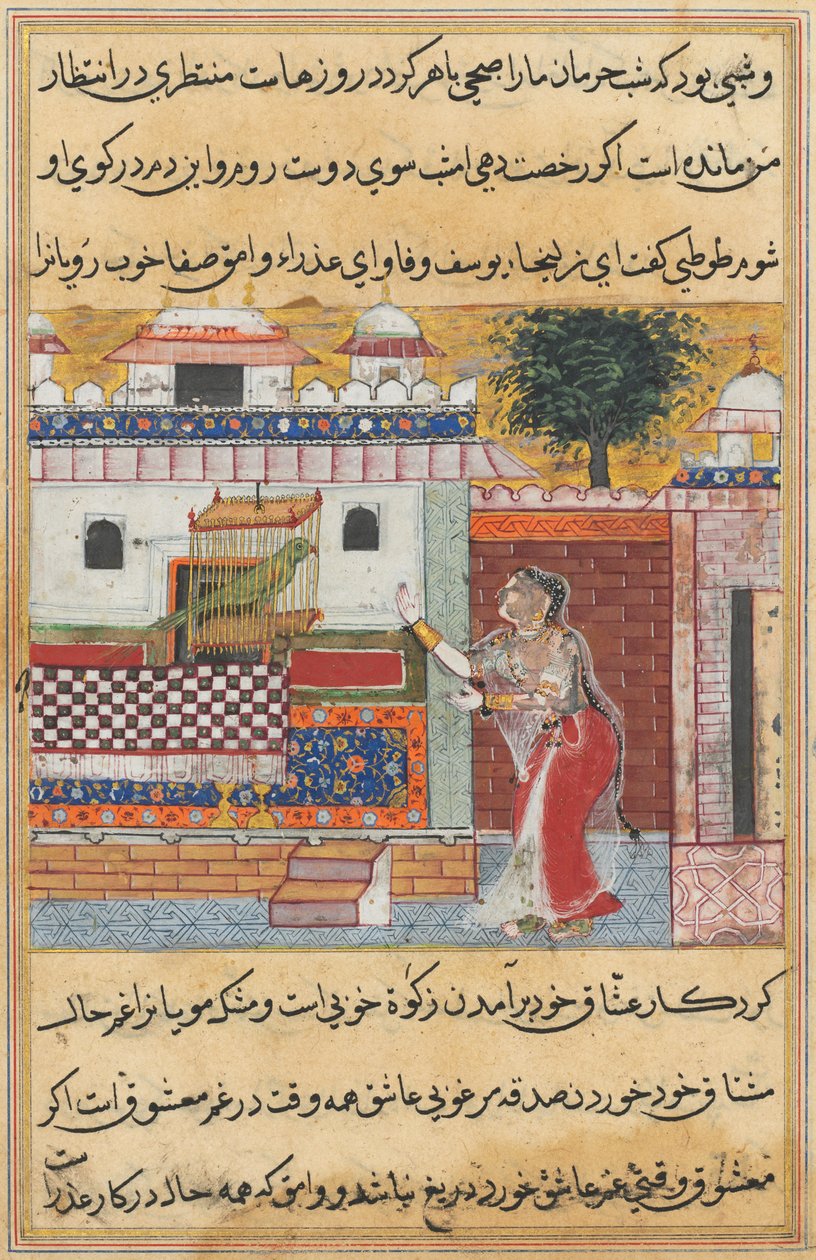 و شبی بود که شب حرمان ما را صبحی باهر کردد روزهاست منتظری در انتظار
من مانده است اکر رخصت دهی امشب سوی دوست روم و این دم در کوی او
شوم طوطی کفت ای زلیخاء یوسف وفا و ای عذراء وامق صفا خوب رویانرا
کرد کار عشّاق خود برآمدن زکوٰة خوبی است و مشک مویانرا غم حال
مشتاق خود خوردن صدقه مرغوبی عاشق همه وقت در غم معشوق است اکر
معشوق وقتی غم عاشق خورد دریغ نباشد و وامق که همه حال در کار عذراست